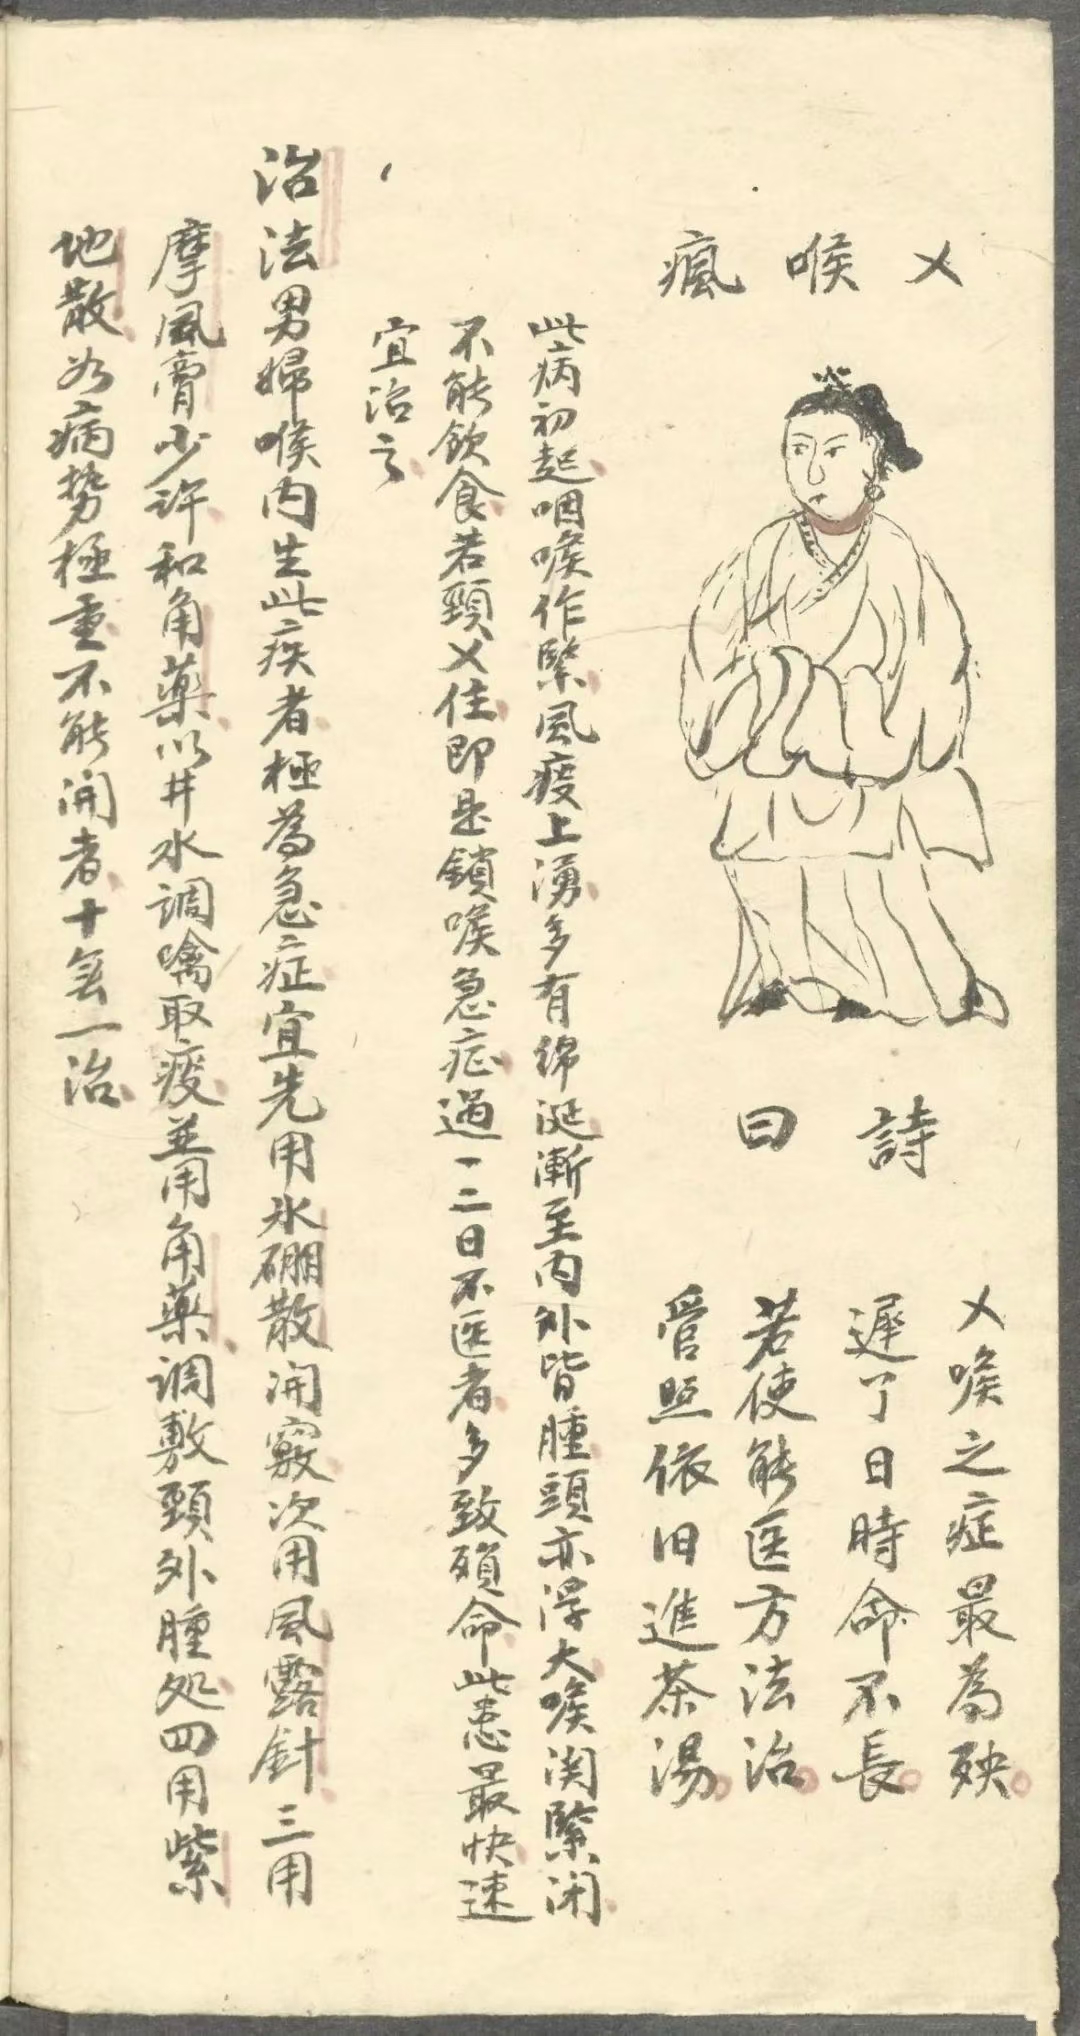 乂喉瘋
詩曰
乂喉之症最為殃
遲了日時命不長
若使能医方法治
管照依旧進茶湯
此病初起咽喉作緊風痰上湧多有綿涎漸至内外皆腫頭亦浮大喉関緊闭
不能飲食若頸乂住即是鎖喉急症過一二日不医者多致殞命此患最快速
宜治之
治法男婦喉内生此疾者極為急症宜先用氷硼散開竅次用風露針三用
摩風膏少許和角藥以井水調噙取痰並用角藥調敷頸外腫処四用紫
地散为病势極重不能開者十無一治